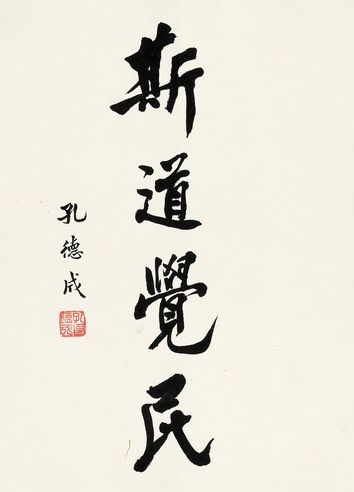 斯道覺民
孔德成